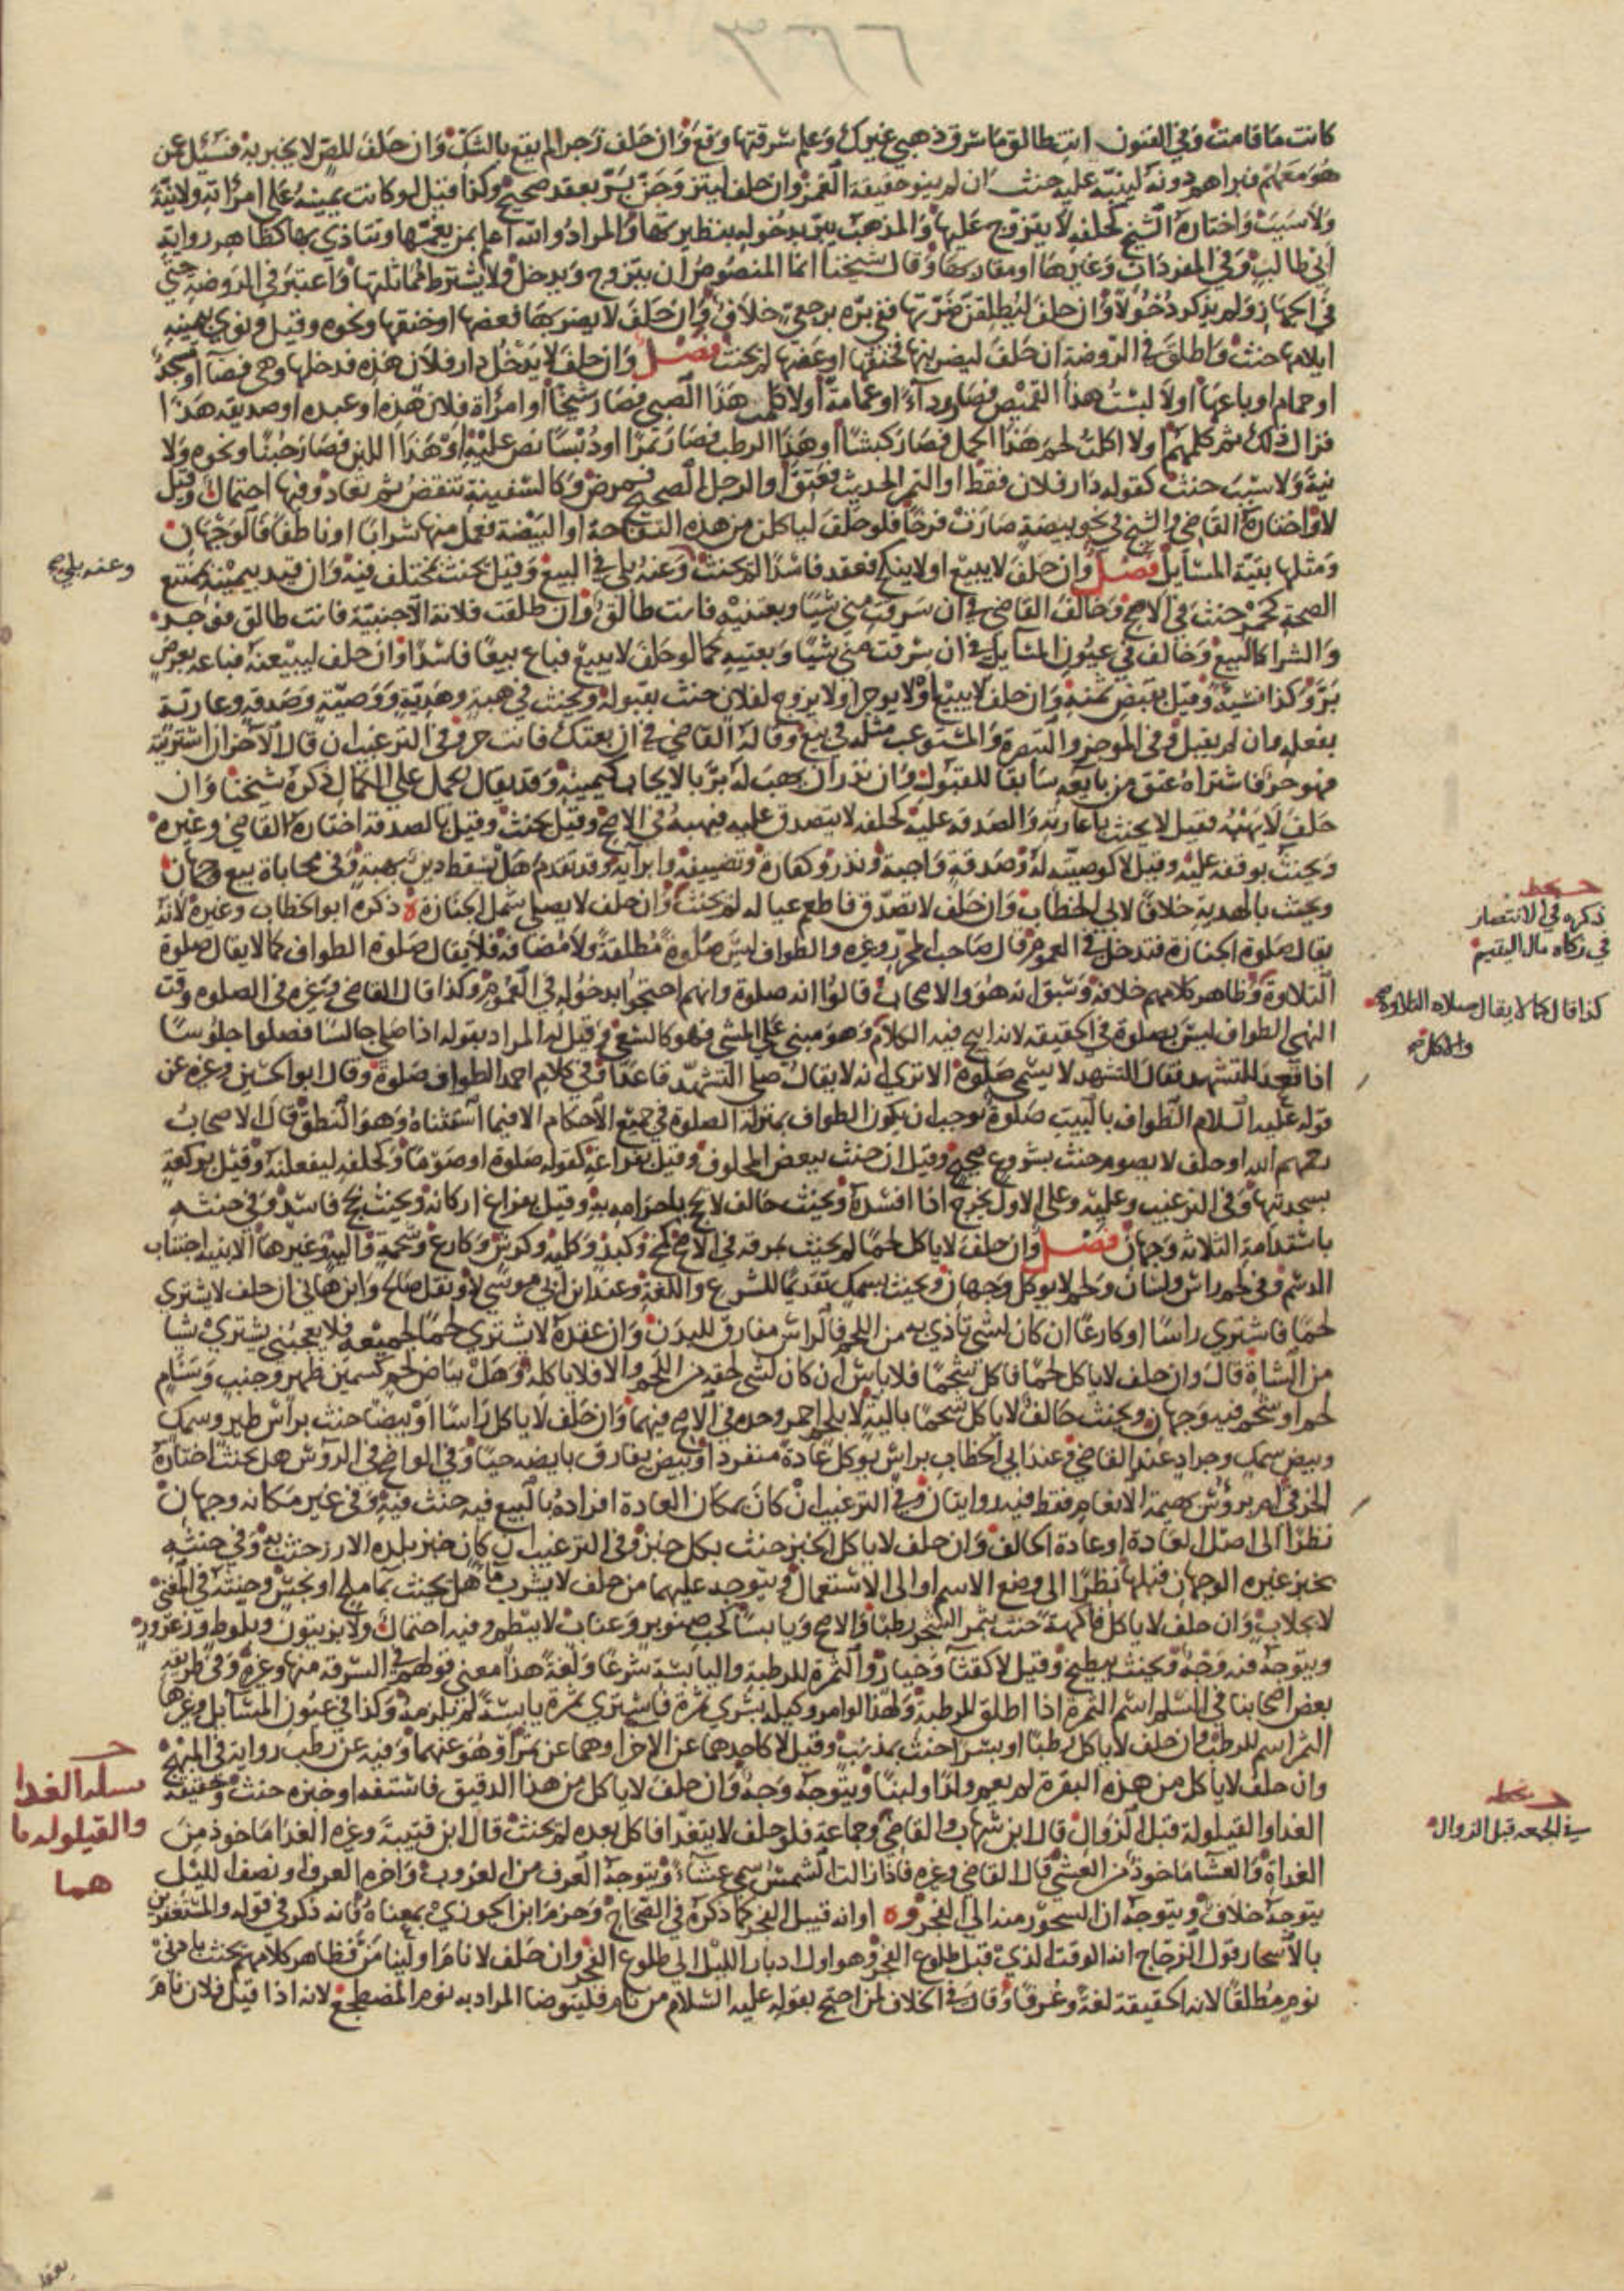 كانت ما قامت وفي الفنون انت طالق ما سرق ذهبي غيرك وعلم سرقتها وقع وان حلف زجرا لم يقع بالشك وان حلف للص لا يخبر به فسئل عن
هو معهم فبراهم دونه لينبه عليه حنث ان لم ينو حقيقة الغمز وان حلف ليتزوجن بر بعقد صحيح وكذا قيل لو كانت يمينه على امراته ولا نية
ولا سبب واختاره الشيخ كحلفه لا يتزوج عليها والمذهب يبر بدخوله بنظيرتها والمراد والله اعلم بمن يغمها وتتاذى بها كظاهر رواية
ابي طالب وفي المفردات وغيرها او مقاربها وقال شيخنا انما المنصوص ان يتزوج ويدخل ولا يشترط مماثلتها واعتبر في الروضة حتى
في الجهاز ولم يذكر دخولا وان حلف ليطلقن ضرتها ففي بره برجعي خلاف وان حلف لا يضربها فعضها او خنقها ونحوه وقيل ونوى بيمينه
ايلامها حنث واطلق في الروضة ان حلف ليضربنها فخنقها او عضها لم يحنث فصل وان حلف لا يدخل دار فلان هذه فدخلها وهي فضاء او مسجد
او حمام او باعها او لا لبست هذا القميص فصار رداء او عمامة او لا كلمت هذا الصبي فصار شيخا او امراة فلان هذه او عبده او صديقه هذا
فزال ذلك ثم كلمهم او لا اكلت لحم هذا الحمل فصار كبشا او هذا الرطب فصار تمرا او دبسا نص عليه او هذا اللبن فصار جبنا ونحوه ولا
نية ولا سبب حنث كقوله دار فلان فقط او التمر الحديث فعتق او الرجل الصحيح فمرض وكالسفينة تنقض ثم تعاد وفيها احتمال وقيل
لا واختاره القاضي في الشيخ في نحو بيضة صارت فرخا فلو حلف لياكلن من هذه التفاحة او البيضة فعمل منها شرابا او ناطفا فالوجهان
ومثلها بقية المسايل فصل وان حلف لا يبيع او لا ينكح فعقد فاسدا لم يحنث وعنه بلى في البيع وقيل يحنث بمختلف فيه وان قيد بيمينه بممتنع
وعنه بلى
الصحة كخمر حنث في الاصح وخالف القاضي في ان سرقت مني شيئا وبعتنيه فانت طالق وان طلقت فلانة الاجنبية فانت طالق فوجد
والشرا كالبيع وخالف في عيون المسايل في ان سرقت مني شيئا وبعتنيه كما لو حلف لا يبيع فباع بيعا فاسدا وان حلف ليبيعنه فباعه بعرض
بر وكذا نسيئة وقيل بقبض ثمنه وان حلف لا يبيع او لا يوجر او لا يزوج لفلان حنث بقبوله ويحنث في هبة وهدية ووصية وصدقة وعارية
بفعله وان لم يقبل وفي الموجز والتبصرة والمستوعب مثله في بيع وقاله القاضي في ان بعتك فانت حر وفي الترغيب ان قال الاخر ان اشتريته
فهو حر فاشتراه عتق من بايعه سابقا للقبول وان نذر ان يهب له بر بالايجاب كيمينه وقد يقال يحمل على الكمال ذكره شيخنا وان
حلف لا يهبه فقيل لا يحنث باعارته والصدقة عليه كحلفه لا يتصدق عليه فيهبه في الاصح وقيل يحنث وقيل بالصدقة اختاره القاضي وغيره
ويحنث بوقفه عليه وقيل لا كوصيته له وصدقة واجبة ونذر وكفارة وتضييفه وابرايه وقد تقدم هل يسقط دين بهبة وفي محاباة بيع وجهان
ويحنث بالهدية خلافا لابي الخطاب وان حلف لا تصدق فاطعم عياله لم يحنث وان حلف لا يصلي شمل الجنازة ذكره ابو الخطاب وغيره لانه
حـ بخط
ذكره في الانتصار
في زكاة مال اليتيم
يقال صلوة الجنازة فتدخل في العموم قال صاحب المحرر وغيره والطواف ليس صلوة مطلقة ولا مضافة فلا يقال صلوة الطواف كما لا يقال صلوة
التلاوة وظاهر كلامهم خلافه وسبق انه هو والاصحاب قالوا انه صلوة وانهم احتجوا بدخوله في العموم وكذا قال القاضي وغيره في الصلوه وقت
كذا قال كما لا يقال صلاه التلاوه
النهي الطواف ليس بصلوة في الحقيقة لانه ابيح فيه الكلام وهو مبني على المشي فهو كالسعي وقيل له المراد بقوله اذا صلى جالسا فصلوا جلوسا
اذا قعد للتشهد فقال التشهد لا يسمى صلوة الا ترى انه لا يقال صلى التشهد قاعدا وفي كلام احمد الطواف صلوة وقال ابو الحسين وغيره عن
قوله عليه السلام الطواف بالبيت صلوة يوجب ان يكون الطواف بمنزلة الصلوة في جميع الاحكام الا فيما استثناه وهو النطق قال الاصحاب
رحمهم الله او حلف لا يصوم حنث بشروع صحيح وقيل ان حنث ببعض المحلوف وقيل بفراغه كقوله صلوة او صوما وكحلفه ليفعلنه وقيل بركعة
بسجدتيها وفي الترغيب وعليه وعلى الاول يخرج اذا افسده ويحنث حالف لا يحج باحرامه به وقيل بفراغ اركانه ويحنث بحج فاسد وفي حنثه
باستدامة الثلاثة وجهان فصل وان حلف لا ياكل لحما لم يحنث بمرقه في الاصح كمخ وكبد وكلية وكرش وكارع وشحمة والية وغيرها الا بنية اجتناب
الدسم وفي لحم راس ولسان ولحم لا يوكل وجهان ويحنث بسمك تقديما للشرع واللغة وعند ابن ابي موسى لا ونقل صالح وابن هاني ان حلف لا يشتري
لحما فاشترى راسا او كارعا ان كان لشيء تاذى به من اللحم فالراس مفارق للبدن وان عقده لا يشتري لحما لجميعه فلا يعجبني يشتري شيا
من الشاة قال وان حلف لا ياكل لحما فاكل شحما فلا باس ان كان لشيء لحقه من اللحم والا فلا ياكله وهل بياض لحم كسمين ظهر وجنب وسنام
لحم او شحم فيه وجهان ويحنث حالف لا ياكل شحما بالية لا بلحم احمر وحده في الاصح فيهما وان حلف لا ياكل راسا او بيضا حنث براس طير وسمك
وبيض سمك وجراد عند القاضي وعند ابي الخطاب براس يوكل عادة منفردا وبيض يفارق بايضه حيا وفي الواضح في الروس هل يحنث اختاره
الخرقي ام بروس بهيمة الانعام فقط فيه روايتان وفي الترغيب ان كان بمكان العادة افراده بالبيع فيه حنث فيه وفي غير مكانه وجهان
نظرا الى اصل العادة او عادة الحالف وان حلف لا ياكل الخبز حنث بكل خبز وفي الترغيب ان كان خبز بلده الارز حنث به وفي حنثه
بخبز غيره الوجهان قبلها نظرا الى وضع الاسم او الى الاستعمال ويتوجه عليهما من حلف لا يشرب ما هل يحنث بما ملح او نجس وحنثه في المغني
لا بجلاب وان حلف لا ياكل فاكهة حنث بثمر الشجر رطبا والاصح ويابسا كحب صنوبر وعناب لا ببطم وفيه احتمال ولا بزيتون وبلوط وزعرور
ويتوجه فيه وجه ويحنث ببطيخ وقيل لا كقثا وخيار والثمرة للرطبة واليابسة شرعا ولغة هذا معنى قولهم في السرقة منها وغيره وفي طريقة
بعض اصحابنا في السلم اسم الثمرة اذا اطلق للرطبة ولهذا لو امر وكيله بشرى ثمرة فاشترى ثمرة يابسة لم تلزمه وكذا في عيون المسائل وغيرها
الثمر اسم للرطب وان حلف لا ياكل رطبا او بسرا حنث بمذنب وقيل لا كاحدهما عن الاخر او هما عن تمر او هو عنهما وفيه عن رطب رواية في المبهج
وان حلف لا ياكل من هذه البقرة لم يعم ولدا ولبنا ويتوجه وجه وان حلف لا ياكل من هذا الدقيق فاستفه او خبزه حنث وحقيقة
الغدا والقيلولة قبل الزوال قال ابن شهاب والقاضي وجماعة فلو حلف لا يتغدا فاكل بعده لم يحنث قال ابن قتيبة وغيره الغدا ماخوذ من
مسلة الغدا
والقيلوله ما
هما
حـ بخط
في الجمعه قبل الزوال
الغداة والعشا ماخوذ من العشي قال القاضي وغيره فاذا زالت الشمس سمي عشاء ويتوجه العرف من الغروب واخره العرف او نصف الليل
يتوجه خلاف ويتوجه ان السحور منه الى الفجر او انه قبيل الفجر كما ذكره في الصحاح وجزم ابن الجوزي بمعناه فانه ذكر في قوله والمستغفرين
بالاسحار قول الزجاج انه الوقت الذي قبل طلوع الفجر وهو اول ادبار الليل الى طلوع الفجر وان حلف لا نام او لينامن فظاهر كلامهم يحنث بادنى
نوم مطلقا لانه الحقيقة لغة وعرفا وقال في الخلاف لمن احتج بقوله عليه السلام من نام فليتوضا المراد به نوم المضطجع لانه اذا قيل فلان نام